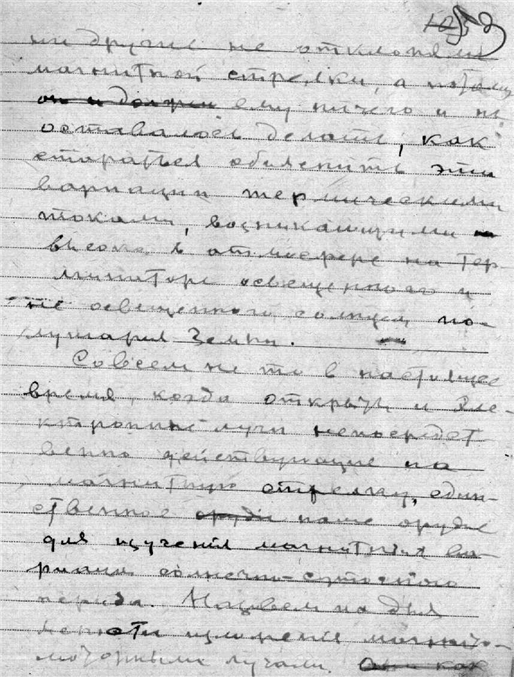 ни другие не отклоняли
магнитной стрелки, а потому
ему ничего и не
оставалось делать, как
стараться объяснить эти
вариации термическими
токами, возникающими
высоко в атмосфере на тер-
минаторе освещенного и
не освещенного солнцем по-
лушария Земли.
Совсем не то в настоящее
время, когда открыты и эле-
ктронные лучи непосредст
венно действующие на
магнитную стрелку, един-
ственное наше орудие
для изучения магнитных ва-
риации солнечно-суточного
периода. Назовем их для
изложения магнито-
моторными лучами. Они как